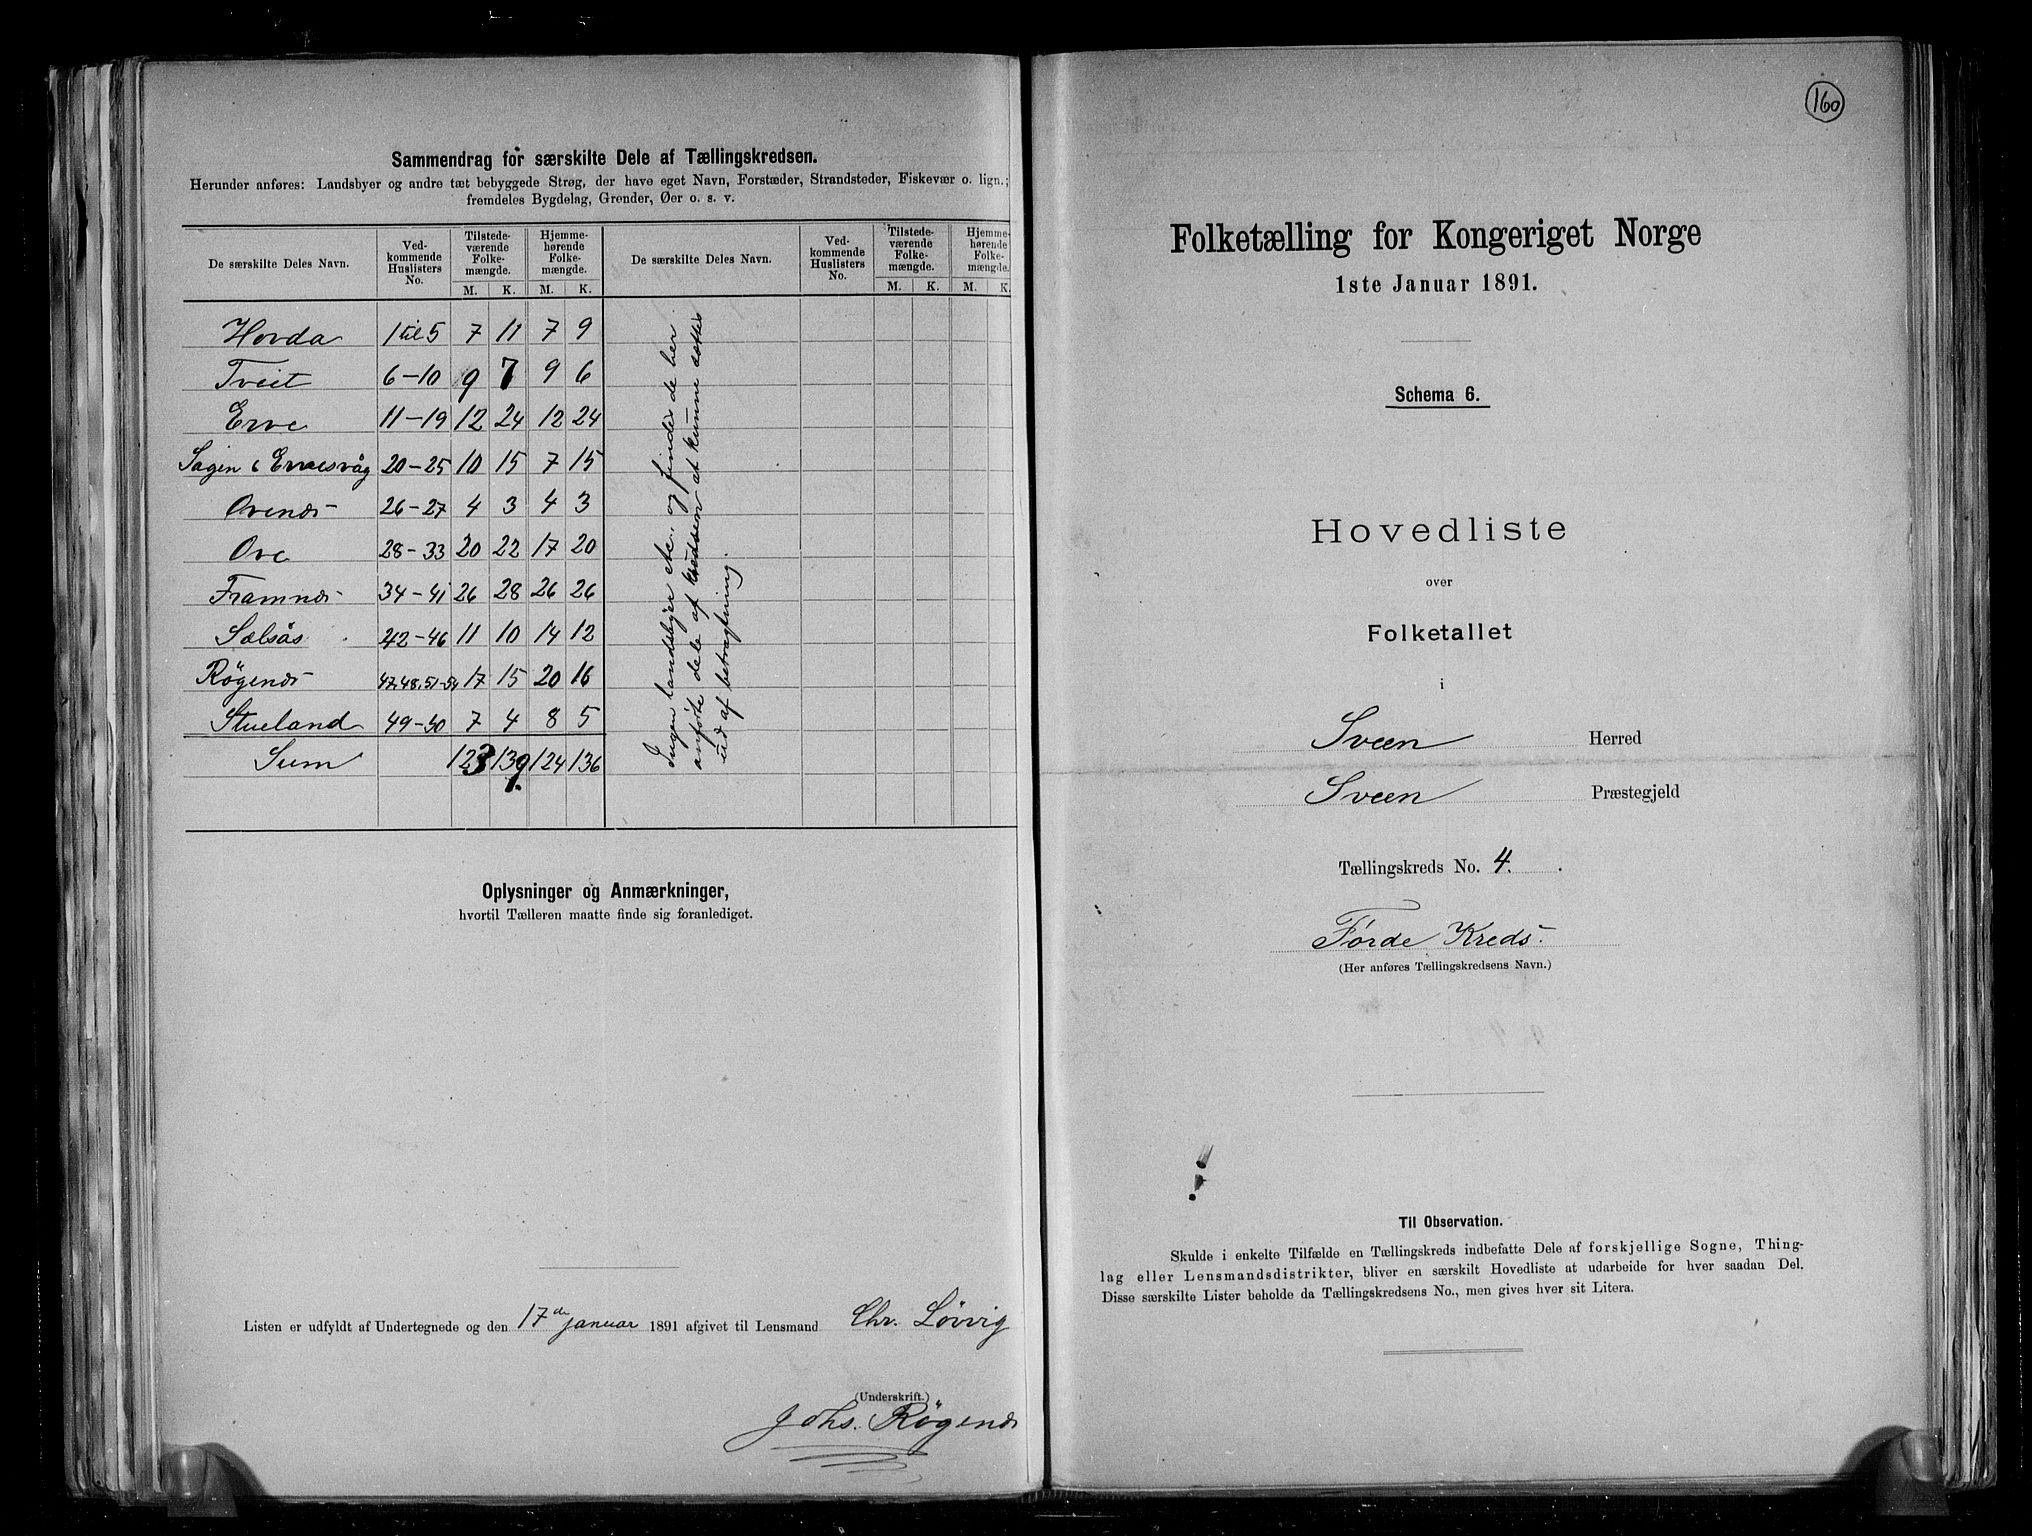 Sammendrag for særskilte Dele af Tællingskredsen.
Herunder anføres: Landsbyer og andre tæt bebyggede Strøg, der have eget Navn, Forstæder, Strandsteder, Fiskevær o. lign.;
fremdeles Bygdelag, Grender, Øer o. s. v.
De særskilte Deles Navn. Ved-kommende Huslisters No. Tilstede-værende Folke-mængde. Hjemme-hørende Folke-mængde. De særskilte Deles Navn. Ved-kommende Huslisters No. Tilstede-værende Folke-mængde. Hjemme-hørende Folke-mængde.
M. K. M. K. M. K. M. K.
Hovda 1 til 5 7 11 7 9
Tveit 6-10 9 7 9 6
Erve 11-19 12 24 12 24
Sagen & Ervesvåg 20-25 10 15 7 15
Ovenes 26-27 4 3 4 3
Ove 28-33 20 22 17 20
Framnes 34-41 26 28 26 26
Sælsås 42-46 11 10 14 12
Røgenes 47,48,51-54 17 15 20 16
Stueland 49-50 7 4 8 5
Sum 123 139 124 136
Ingen landsbyer etc. og findes de her
anførte dele af kredsen at kunne sættes
ud af betragtning.
Oplysninger og Anmærkninger,
hvortil Tælleren maatte finde sig foranlediget.
Listen er udfyldt af Undertegnede og den 17de januar 1891 afgivet til Lensmand Chr. Løvvig
(Underskrift.)
Johs. Røgenes
160
Folketælling for Kongeriget Norge
1ste Januar 1891.
Schema 6.
Hovedliste
over
Folketallet
i
Sveen Herred
Sveen Præstegjeld
Tællingskreds No. 4.
Førde Kreds.
(Her anføres Tællingskredsens Navn.)
Til Observation.
Skulde i enkelte Tilfælde en Tællingskreds indbefatte Dele af forskjellige Sogne, Thing-
lag eller Lensmandsdistrikter, bliver en særskilt Hovedliste at udarbeide for hver saadan Del.
Disse særskilte Lister beholde da Tællingskredsens No., men gives hver sit Litera.